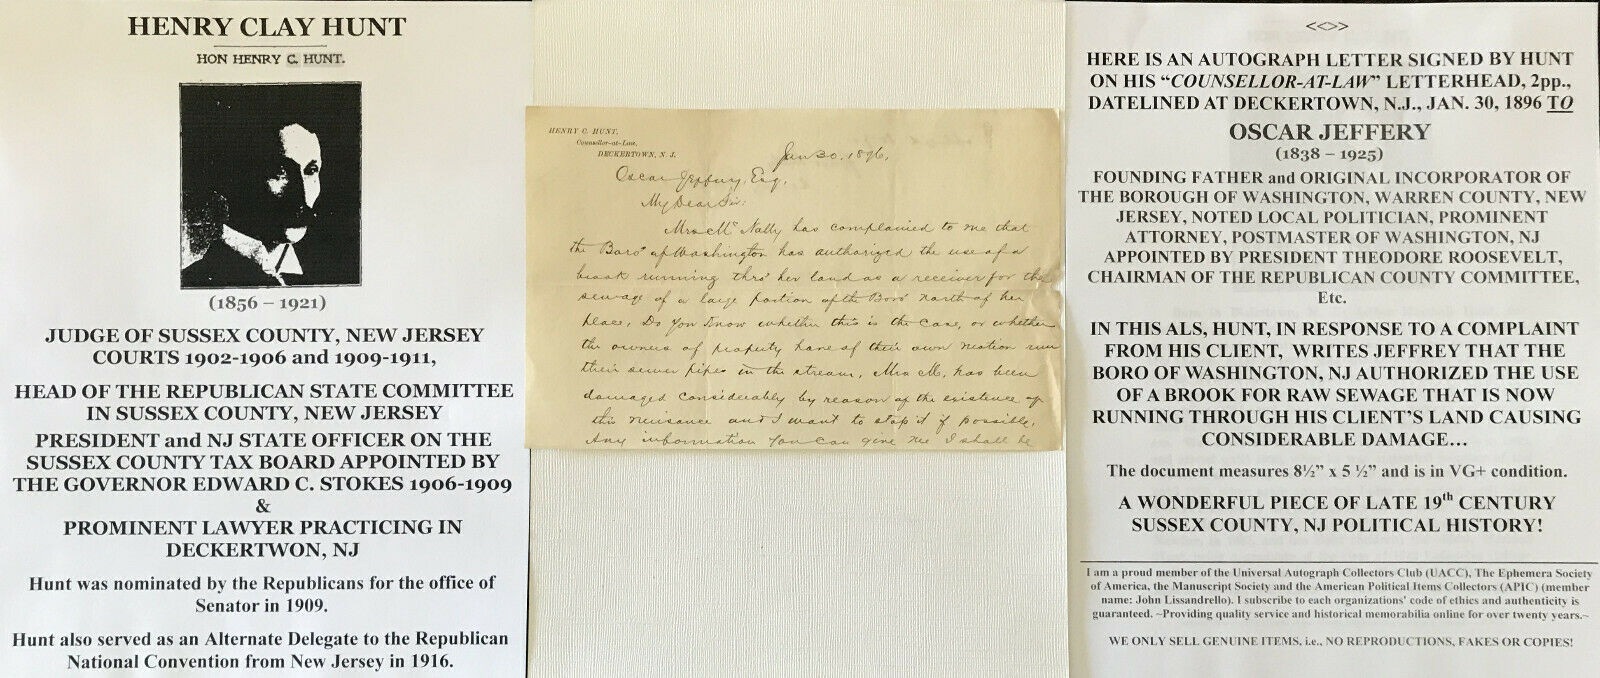 HENRY CLAY HUNT
HON HENRY C. HUNT.
(1856 – 1921)
JUDGE OF SUSSEX COUNTY, NEW JERSEY
COURTS 1902-1906 and 1909-1911,
HEAD OF THE REPUBLICAN STATE COMMITTEE
IN SUSSEX COUNTY, NEW JERSEY
PRESIDENT and NJ STATE OFFICER ON THE
SUSSEX COUNTY TAX BOARD APPOINTED BY
THE GOVERNOR EDWARD C. STOKES 1906-1909
&
PROMINENT LAWYER PRACTICING IN
DECKERTWON, NJ
Hunt was nominated by the Republicans for the office of
Senator in 1909.
Hunt also served as an Alternate Delegate to the Republican
National Convention from New Jersey in 1916.
HENRY C. HUNT,
Counsellor-at-Law,
DECKERTOWN, N. J.
Jan 30, 1896,
Oscar Jeffery, Esq,
My Dear Sir:
Mrs Mc Nally has complained to me that
the Boro' of Washington has authorized the use of a
brook running thro' her land as a receiver for the
sewage of a large portion of the Boro' north of her
place. Do you know whether this is the case, or whether
the owners of property have of their own motion run
their sewer pipes in the stream. Mrs M. has been
damaged considerably by reason of the existence of
this nuisance and I want to stop it if possible.
Any information you can give me I shall be
<<>>>
HERE IS AN AUTOGRAPH LETTER SIGNED BY HUNT
ON HIS “COUNSELLOR-AT-LAW” LETTERHEAD, 2pp.,
DATELINED AT DECKERTOWN, N.J., JAN. 30, 1896 TO
OSCAR JEFFERY
(1838 – 1925)
FOUNDING FATHER and ORIGINAL INCORPORATOR OF
THE BOROUGH OF WASHINGTON, WARREN COUNTY, NEW
JERSEY, NOTED LOCAL POLITICIAN, PROMINENT
ATTORNEY, POSTMASTER OF WASHINGTON, NJ
APPOINTED BY PRESIDENT THEODORE ROOSEVELT,
CHAIRMAN OF THE REPUBLICAN COUNTY COMMITTEE,
Etc.
IN THIS ALS, HUNT, IN RESPONSE TO A COMPLAINT
FROM HIS CLIENT, WRITES JEFFREY THAT THE
BORO OF WASHINGTON, NJ AUTHORIZED THE USE
OF A BROOK FOR RAW SEWAGE THAT IS NOW
RUNNING THROUGH HIS CLIENT’S LAND CAUSING
CONSIDERABLE DAMAGE…
The document measures 8½” x 5 ½” and is in VG+ condition.
A WONDERFUL PIECE OF LATE 19th CENTURY
SUSSEX COUNTY, NJ POLITICAL HISTORY!
I am a proud member of the Universal Autograph Collectors Club (UACC), The Ephemera Society
of America, the Manuscript Society and the American Political Items Collectors (APIC) (member
name: John Lissandrello). I subscribe to each organizations' code of ethics and authenticity is
guaranteed. ~Providing quality service and historical memorabilia online for over twenty years.~
WE ONLY SELL GENUINE ITEMS, i.e., NO REPRODUCTIONS, FAKES OR COPIES!